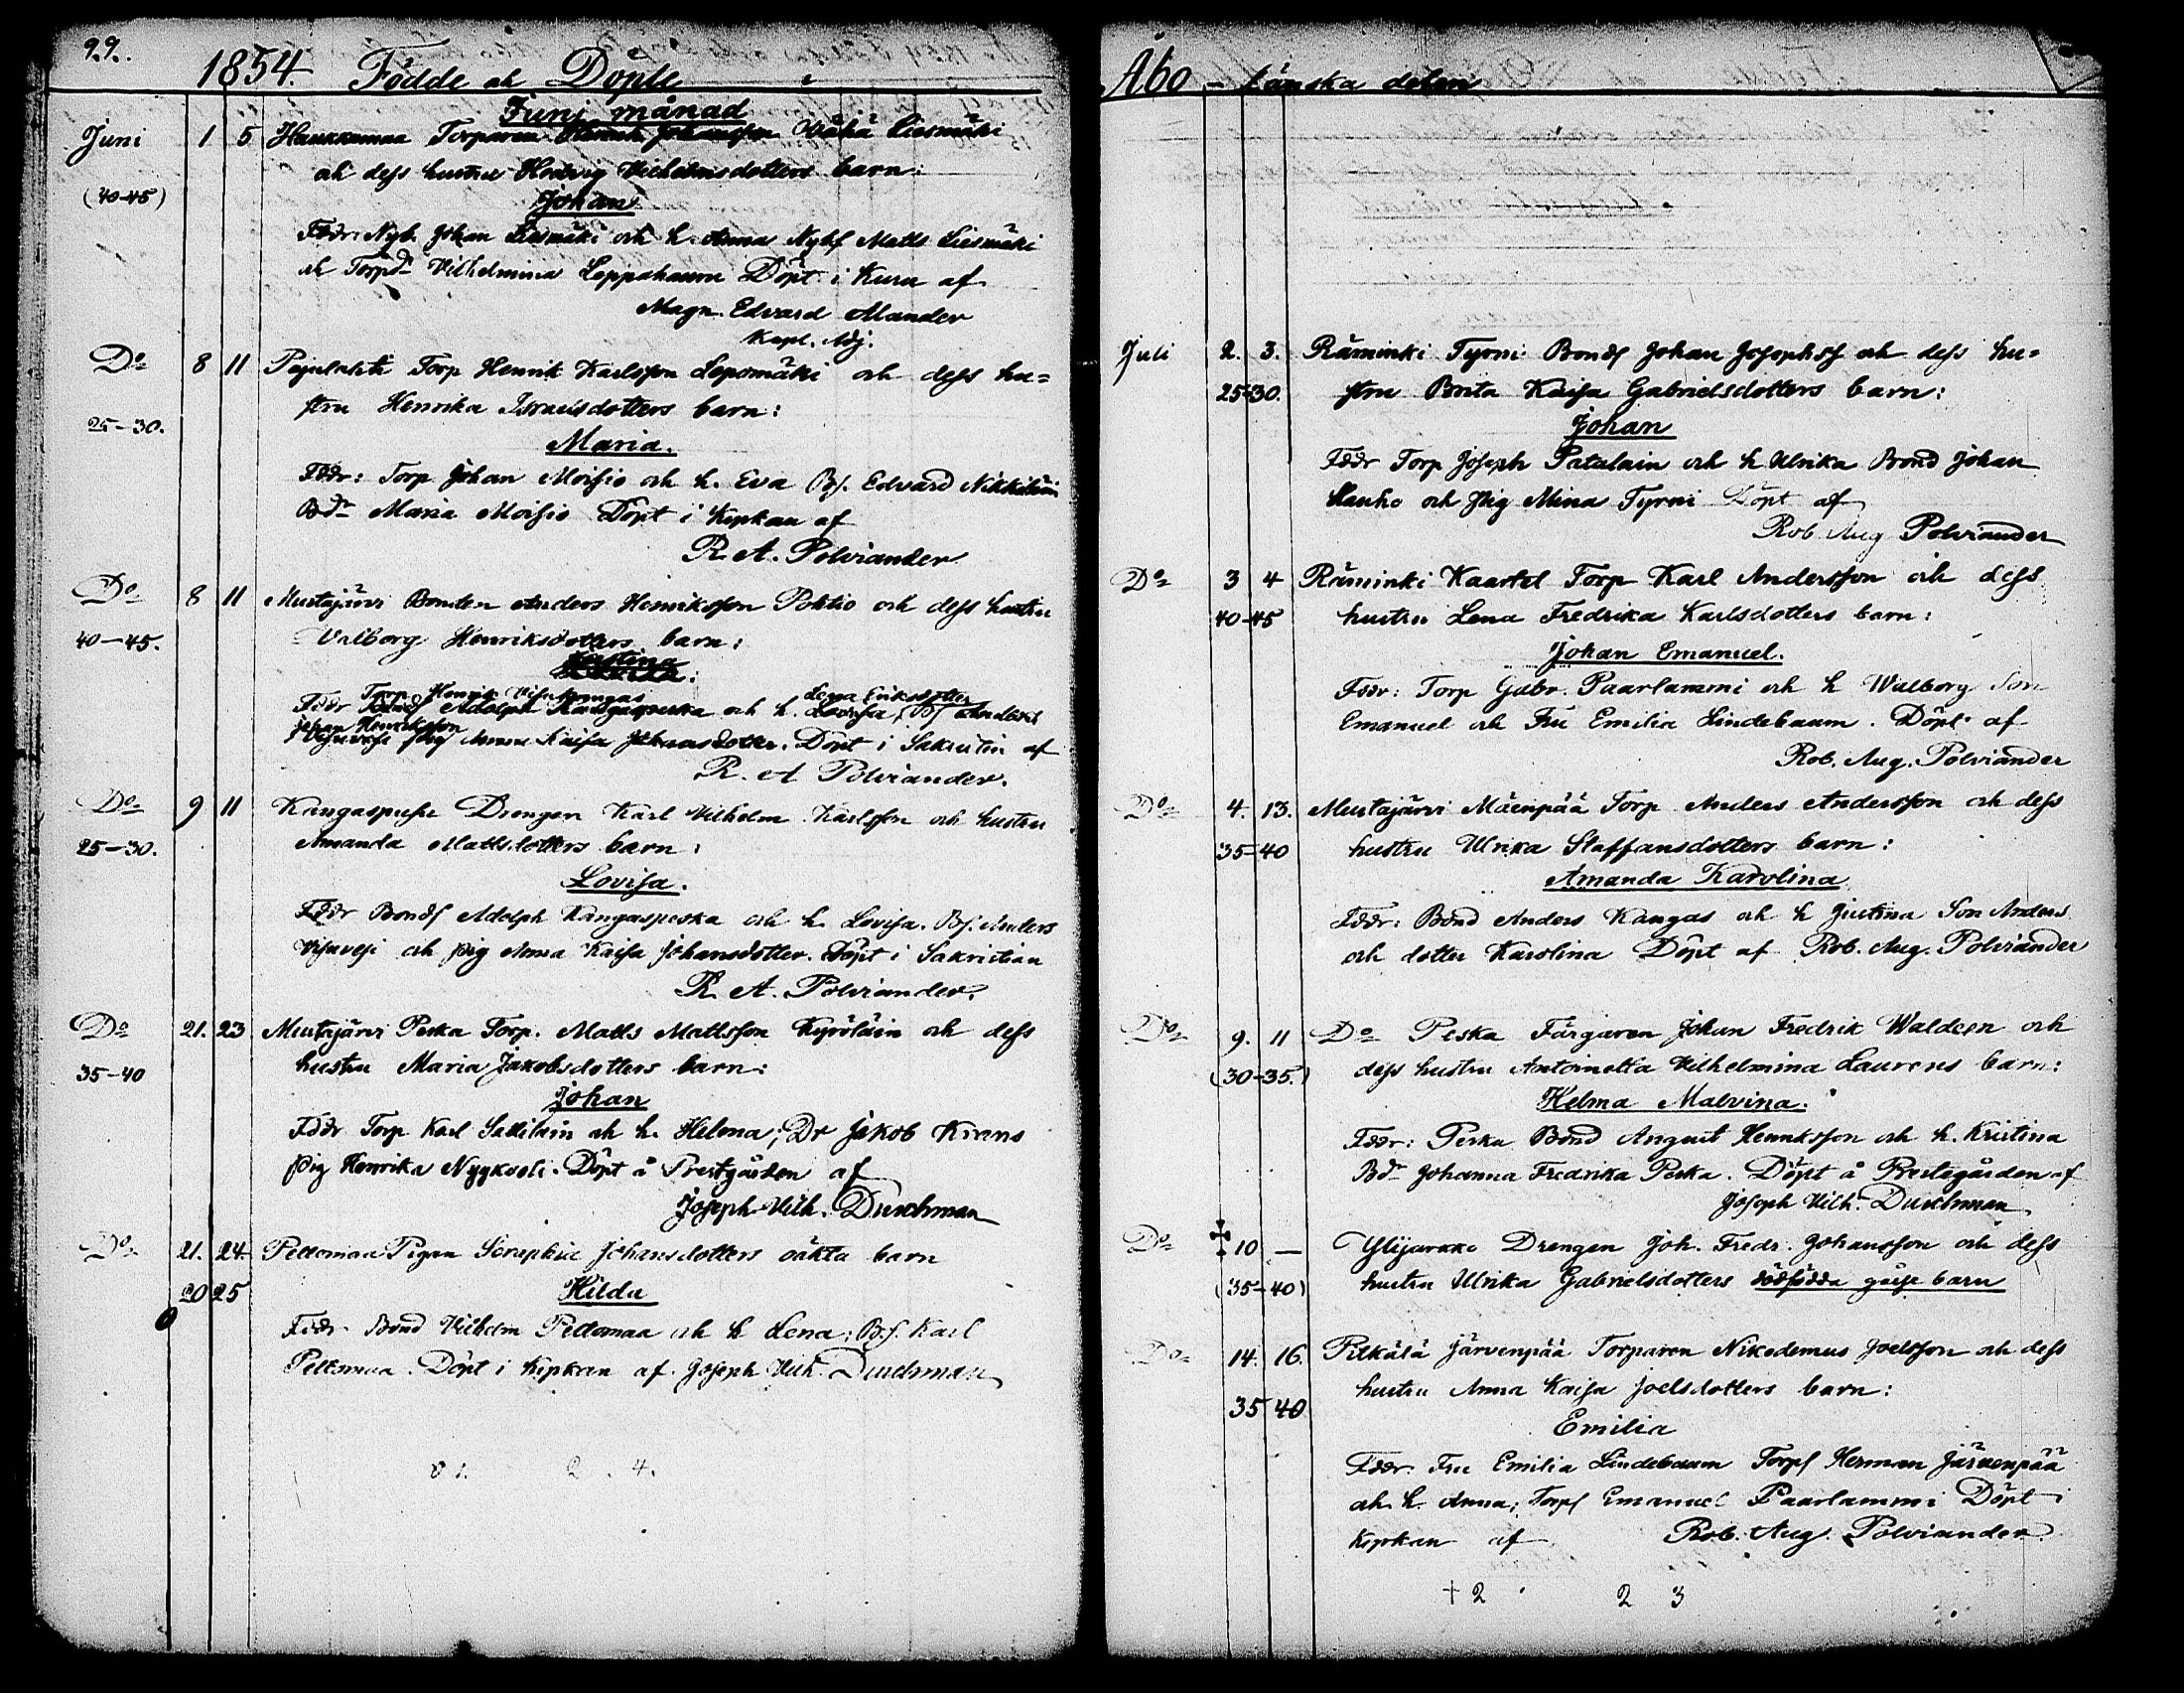 99.
1854. Födde och Döpte
Juni månad
Juni 1 5 Haukkamaa Torparen Henrik Johansson Vähä Liesmäki
och dess hustru Hedvig Vilhelmsdotters barn:
(40-45)
Johan
Fddr: Nyb. Johan Liesmäki och h. Anna Nybs Matts Liesmäki
och Torpd Vilhelmina Leppähaara Döpt i Kuru af
Magn. Edvard Mander
Kapl. Adj.
Do 8 11 Pajulahti Torp Henrik Karlsson Lepomäki och dess hu=
stru Henrika Israelsdotters barn:
25-30.
Maria.
Fddr: Torp Johan Moisio och h. Eva Bs. Edvard Nikkiläin
Bdr Maria Moisio Döpt i Kyrkan af
R. A. Polviander
Do 8 11 Mustajärvi Bonden Anders Henriksson Pohtio och dess hustru
40-45. Valborg Henriksdotters barn:
Justina
Torp Henrik Kangas Lena Eriksdotter
Fddr Bonds Adolph Kangaspeska och h. Lovisa, Bs Anders
Johan Henriksson
pig Anna Kaisa Johansdotter. Döpt i Sakristin af
R. A Polviander.
Do 9 11 Kangaspeska Drengen Karl Vilhelm Karlsson och hustru
25-30. Amanda Mattsdotters barn:
Lovisa.
Fddr Bonds Adolph Kangaspeska och h. Lovisa. Bs. Anders
Visuvesi och pig Anna Kaisa Johansdotter. Döpt i Sakristian
R. A. Polviander.
Do 21. 23 Mustajärvi Peska Torp. Matts Mattsson Kyröläin och dess
35-40 hustru Maria Jakobsdotters barn:
Johan
Fddr Torp Karl Sallilain och h. Helena; Dr Jakob Krans
pig Henrika Nygkveli. Döpt å Prestgården af
Joseph Vilh. Durchman
Do 21. 24 Peltomaa Pigan Seraphia Johansdotters oäkta barn
20 25 Hilda
Fddr. Bond Vilhelm Peltomaa och h Lena; Bs. Karl
Peltomaa. Döpt i Kyrkan af. Joseph Vilh. Durchman
2 . 4.
Åbo - länska delen
Juli 2. 3. Räminki Tyrni Bonds Johan Josephss och dess hu=
25-30. stru Brita Kaisa Gabrielsdotters barn:
Johan
Fddr Torp Joseph Patalain och h Ulrika Bond Johan
Hanho och pig Mina Tyrni Döpt af
Rob. Aug Polviander
Do 3 4 Räminki Kaartet Torp Karl Andersson och dess
40-45 hustru Lena Fredrika Karlsdotters barn:
Johan Emanuel.
Fddr: Torp Gabr. Paarlammi och h Walborg Son
Emanuel och Fru Emilia Lindebaum. Döpt af
Rob. Aug. Polviander
Do 4. 13. Mustajärvi Mäenpää Torp Anders Andersson och dess
35-40 hustru Ulrika Staffansdotters barn:
Amanda Karolina
Fddr: Bond Anders Kangas och h Justina Son Anders
och dotter Karolina Döpt af Rob. Aug. Polviander
Do 9. 11 Do Peska Färgaren Johan Fredrik Waldeen och
(30-35.) dess hustru Antoinetta Vilhelmina Laurens barn:
Helma Malvina.
Fddr: Peska Bond August Henriksson och h. Kristina
Bdr Johanna Fredrika Peska. Döpt å Prestegården af
Joseph Vilh. Durchman
Do + 10 — Ylijaakko Drengen Joh. Fredr. Johansson och dess
(35-40) hustru Ulrika Gabrielsdotters dödfödda gosse barn
Do 14. 16. Pitkälä Järvenpää Torparen Nikodemus Joelsson och dess
35 40 hustru Anna Kaisa Joelsdotters barn:
Emilia
Fddr. Fru Emilia Lindebaum Torps Herman Järvenpää
och h. Anna; Torps Emanuel Paarlammi Döpt i
Kyrkan af Rob. Aug. Polviander.
+ 2 2 3